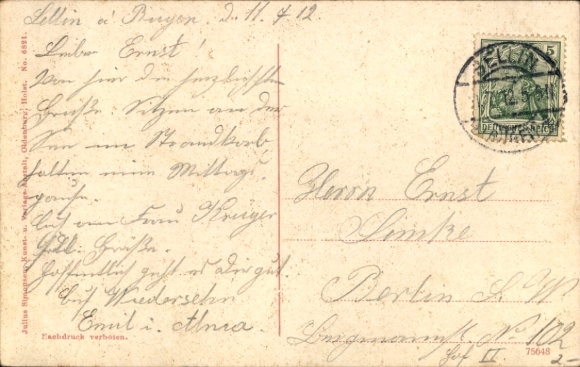 Sellin a/ Rügen. d. 11. 7 12.
Lieber Ernst!
Von hier die herzlichsten
Grüße Sitzen an der
See im Strandkorb
halten eine Mittags
pause.
Auch an Frau Krüger
Grüße.
Hoffentlich geht es dir gut.
Auf Wiedersehn
Emil i.
Herrn Ernst
Linke
Berlin S. W
Bergmannst. No 102
Hof II
2-
SELLIN
5
DEUTSCHES REICH
Julius Simonsen, Kunst- u. Verlags-Anstalt, Oldenburg, Holst. No. 6821.
Nachdruck verboten.
75648